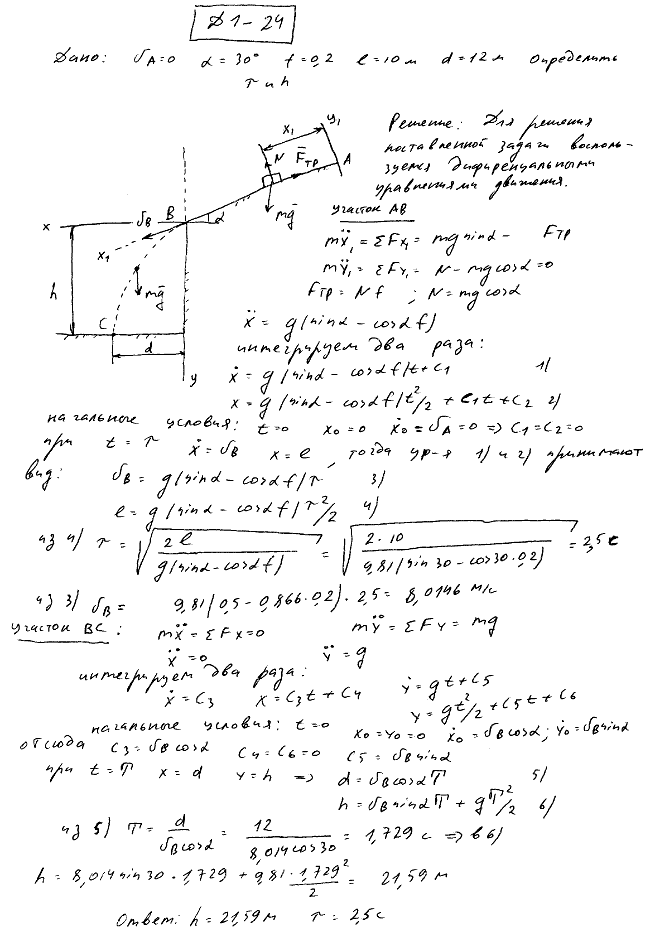 Д1-24
Дано: υA=0 α=30° f=0,2 l=10м d=12м Определить
τ и h
Решение: Для решения
поставленной задачи восполь-
зуемся дифиренциальными
уравнениями движения.
y1
x1
N F̄тр A
mḡ
x υB B α
x1
h mḡ
C
d
y
участок AB
mẍ1 = ΣFx1 = mg sinα - Fтр
mÿ1 = ΣFy1 = N - mg cosα = 0
Fтр = Nf ; N = mg cosα
ẍ = g(sinα - cosα f)
интегрируем два раза:
ẋ = g(sinα - cosα f)t + C1 1)
x = g(sinα - cosα f)t²/2 + C1t + C2 2)
начальные условия: t=0 x0=0 ẋ0=υA=0 => C1=C2=0
при t=τ ẋ=υB x=l, тогда ур-я 1) и 2) принимают
вид: υB = g(sinα - cosα f)τ 3)
l = g(sinα - cosα f)τ²/2 4)
из 4) τ = √(2l / g(sinα - cosα f)) = √(2·10 / 9,81(sin30 - cos30·0,2)) = 2,5с
из 3) υB = 9,81(0,5 - 0,866·0,2)·2,5 = 8,0146 м/с
участок BC: mẍ = ΣFx = 0 mÿ = ΣFy = mg
ẍ = 0 ÿ = g
интегрируем два раза:
ẋ = C3 x = C3t + C4 ẏ = gt + C5
y = gt²/2 + C5t + C6
начальные условия: t=0 x0=y0=0 ẋ0=υB cosα; ẏ0=υB sinα
отсюда C3=υB cosα C4=C6=0 C5=υB sinα
при t=T x=d y=h => d=υB cosα T 5)
h=υB sinα T + gT²/2 6)
из 5) T = d / υB cosα = 12 / 8,014 cos30 = 1,729 с => в 6)
h = 8,014 sin30·1,729 + 9,81·1,729²/2 = 21,59 м
Ответ: h=21,59м τ=2,5с